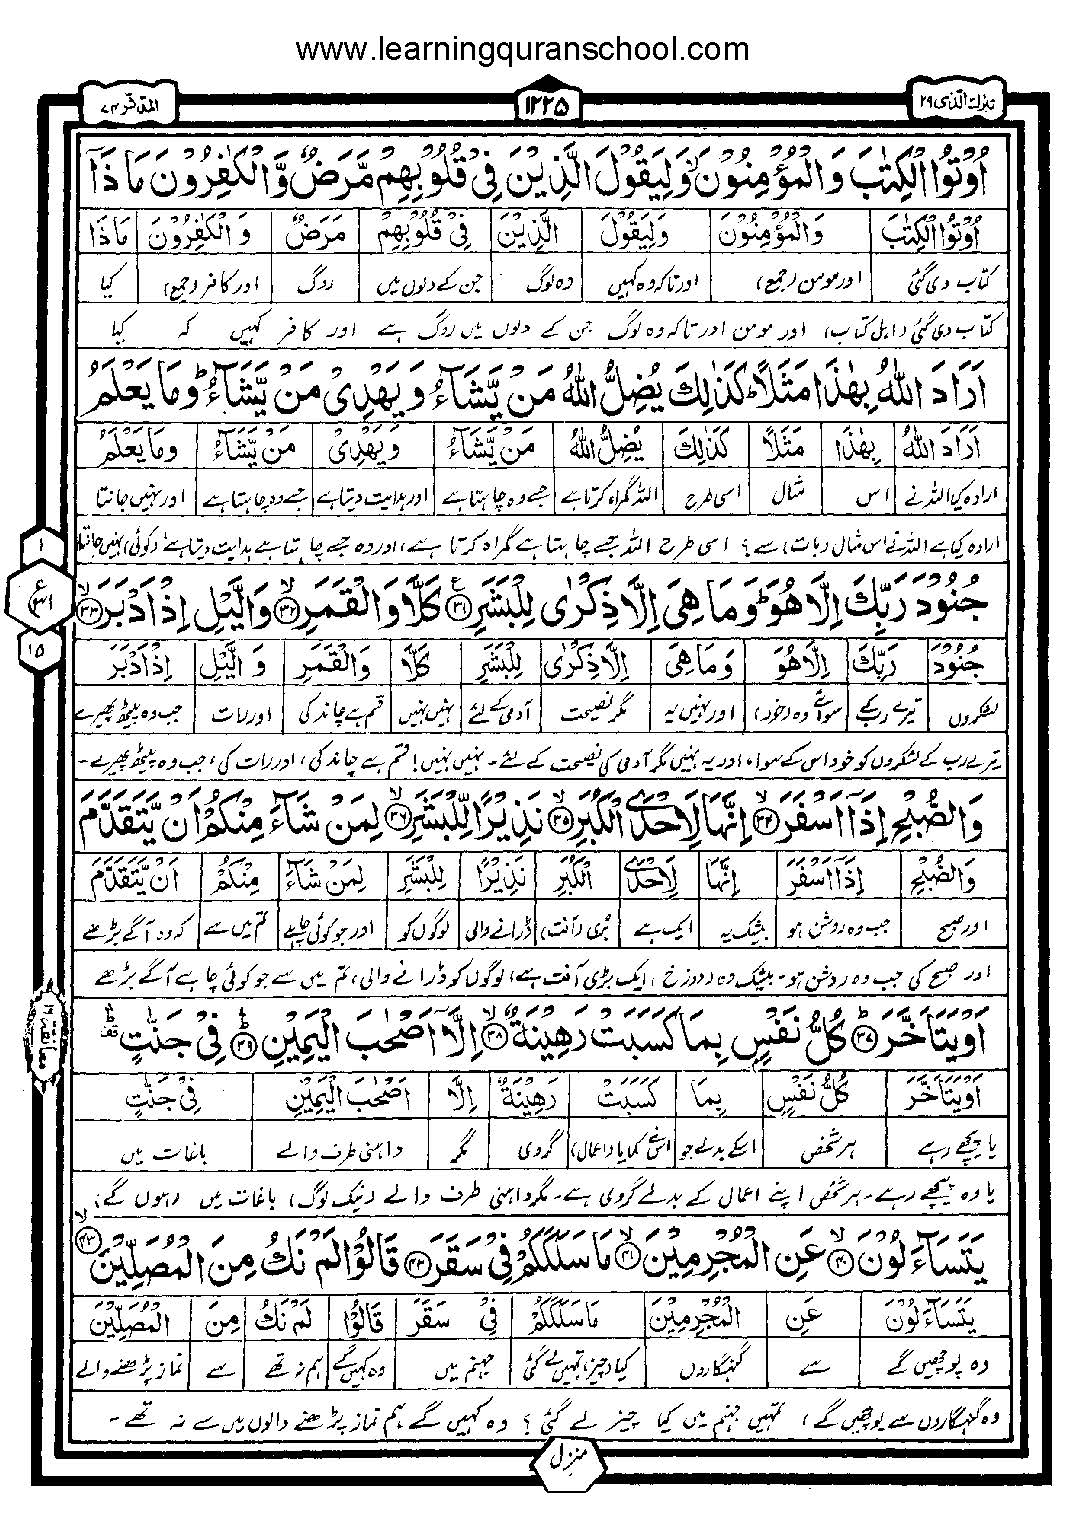 www.learningquranschool.com
المدثر ۷۴
۱۲۲۵
تبٰرك الذی ۲۹
اُوْتُوا الْكِتٰبَ وَ الْمُؤْمِنُوْنَ ۙ وَ لِیَقُوْلَ الَّذِیْنَ فِیْ قُلُوْبِهِمْ مَّرَضٌ وَّ الْكٰفِرُوْنَ مَا ذَاۤ
اُوْتُوا الْكِتٰبَ وَ الْمُؤْمِنُوْنَ وَ لِیَقُوْلَ الَّذِیْنَ فِیْ قُلُوْبِهِمْ مَرَضٌ وَ الْكٰفِرُوْنَ مَا ذَا
کتاب دی گئی اور مومن (جمع) اور تاکہ وہ کہیں وہ لوگ جن کے دلوں میں روگ اور کافر (جمع) کیا
کتاب دی گئی (اہل کتاب) اور مومن اور تاکہ وہ لوگ جن کے دلوں میں روگ ہے اور کافر کہیں کہ کیا
اَرَادَ اللّٰهُ بِهٰذَا مَثَلًا ؕ كَذٰلِكَ یُضِلُّ اللّٰهُ مَنْ یَّشَآءُ وَ یَهْدِیْ مَنْ یَّشَآءُ ؕ وَ مَا یَعْلَمُ
اَرَادَ اللّٰهُ بِهٰذَا مَثَلًا كَذٰلِكَ یُضِلُّ اللّٰهُ مَنْ یَّشَآءُ وَ یَهْدِیْ مَنْ یَّشَآءُ وَ مَا یَعْلَمُ
ارادہ کیا اللہ نے اس مثال اسی طرح اللہ گمراہ کرتا ہے جسے وہ چاہتا ہے اور ہدایت دیتا ہے جسے وہ چاہتا ہے اور نہیں جانتا
ارادہ کیا ہے اللہ نے اس مثال (بات) سے؟ اسی طرح اللہ جسے چاہتا ہے گمراہ کرتا ہے، اور وہ جسے چاہتا ہے ہدایت دیتا ہے (کوئی) نہیں جانتا
جُنُوْدَ رَبِّكَ اِلَّا هُوَ ؕ وَ مَا هِیَ اِلَّا ذِكْرٰی لِلْبَشَرِ ۳۱ كَلَّا وَ الْقَمَرِ ۳۲ وَ الَّیْلِ اِذْ اَدْبَرَ ۳۳
جُنُوْدَ رَبِّكَ اِلَّا هُوَ وَ مَا هِیَ اِلَّا ذِكْرٰی لِلْبَشَرِ كَلَّا وَالْقَمَرِ وَ الَّیْلِ اِذْ اَدْبَرَ
لشکروں تیرے رب کے سوائے وہ (خود) اور نہیں یہ مگر نصیحت آدمی کے لئے نہیں نہیں قسم ہے چاند کی اور رات جب وہ پیٹھ پھیرے
تیرے رب کے لشکروں کو خود اس کے سوا، اور یہ نہیں مگر آدمی کی نصیحت کے لئے۔ نہیں نہیں! قسم ہے چاند کی، اور رات کی، جب وہ پیٹھ پھیرے۔
وَ الصُّبْحِ اِذَاۤ اَسْفَرَ ۳۴ اِنَّهَا لَاِحْدَی الْكُبَرِ ۳۵ نَذِیْرًا لِّلْبَشَرِ ۳۶ لِمَنْ شَآءَ مِنْكُمْ اَنْ یَّتَقَدَّمَ
وَ الصُّبْحِ اِذَاۤ اَسْفَرَ اِنَّهَا لَاِحْدَی الْكُبَرِ نَذِیْرًا لِلْبَشَرِ لِمَنْ شَآءَ مِنْكُمْ اَنْ یَّتَقَدَّمَ
اور صبح جب وہ روشن ہو بیشک یہ ایک ہے بڑی (آفت) ڈرانے والی لوگوں کو اور جو کوئی چاہے تم میں سے کہ وہ آگے بڑھے
اور صبح کی جب وہ روشن ہو۔ بیشک وہ (دوزخ) ایک بڑی آفت ہے، لوگوں کو ڈرانے والی، تم میں سے جو کوئی چاہے آگے بڑھے
اَوْ یَتَاَخَّرَ ۳۷ كُلُّ نَفْسٍۭ بِمَا كَسَبَتْ رَهِیْنَةٌ ۳۸ اِلَّاۤ اَصْحٰبَ الْیَمِیْنِ ۳۹ فِیْ جَنّٰتٍ
اَوْ یَتَاَخَّرَ كُلُّ نَفْسٍ بِمَا كَسَبَتْ رَهِیْنَةٌ اِلَّا اَصْحٰبَ الْیَمِیْنِ فِیْ جَنّٰتٍ
یا پیچھے رہے ہر شخص اسکے بدلے جو اس نے کمایا (اعمال) گروی مگر داہنی طرف والے باغات میں
یا وہ پیچھے رہے۔ ہر شخص اپنے اعمال کے بدلے گروی ہے۔ مگر داہنی طرف والے (نیک لوگ) باغات میں (ہوں گے)
یَتَسَآءَلُوْنَ ۴۰ عَنِ الْمُجْرِمِیْنَ ۴۱ مَا سَلَكَكُمْ فِیْ سَقَرَ ۴۲ قَالُوْا لَمْ نَكُ مِنَ الْمُصَلِّیْنَ ۴۳
یَتَسَآءَلُوْنَ عَنِ الْمُجْرِمِیْنَ مَا سَلَكَكُمْ فِیْ سَقَرَ قَالُوْا لَمْ نَكُ مِنَ الْمُصَلِّیْنَ
وہ پوچھیں گے سے گنہگاروں کیا (چیز) تمہیں لے گئی جہنم میں وہ کہیں گے ہم نہ تھے سے نماز پڑھنے والے
وہ گنہگاروں سے پوچھیں گے، تمہیں جہنم میں کیا چیز لے گئی؟ وہ کہیں گے ہم نماز پڑھنے والوں میں سے نہ تھے۔
۱
ع
۳۱
۱۵
منزل